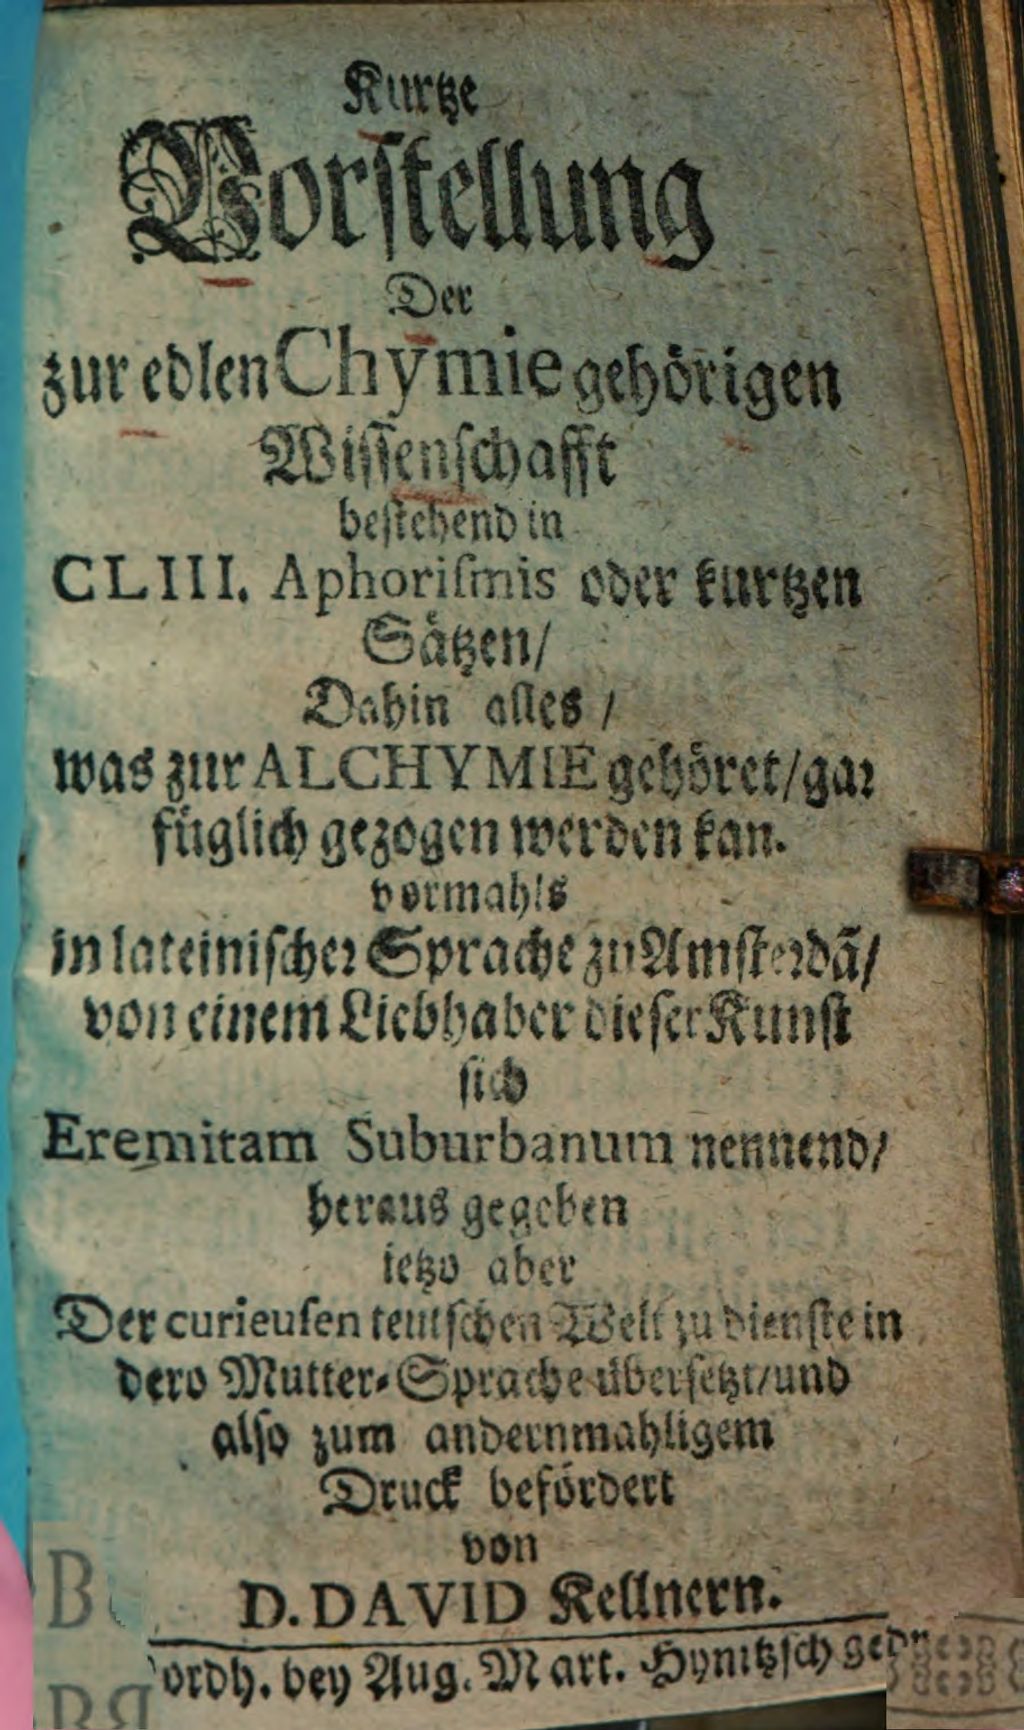 Kurtze
Vorſtellung
Der
zur edlen Chymie gehörigen
Wiſſenſchafft
beſtehend in
CLIII. Aphoriſmis oder kurtzen
Sätzen/
Dahin alles /
was zur ALCHYMIE gehöret/gar
füglich gezogen werden kan.
vormahls
in lateiniſcher Sprache zu Amſterdã/
von einem Liebhaber dieſer Kunſt
ſich
Eremitam Suburbanum nennend/
heraus gegeben
ietzo aber
Der curieuſen teutſchen Welt zu dienſte in
dero Mutter-Sprache überſetzt/und
alſo zum andernmahligem
Druck befördert
von
D. DAVID Kellnern.
ordh. bey Aug. Mart. Hynitzſch gedr